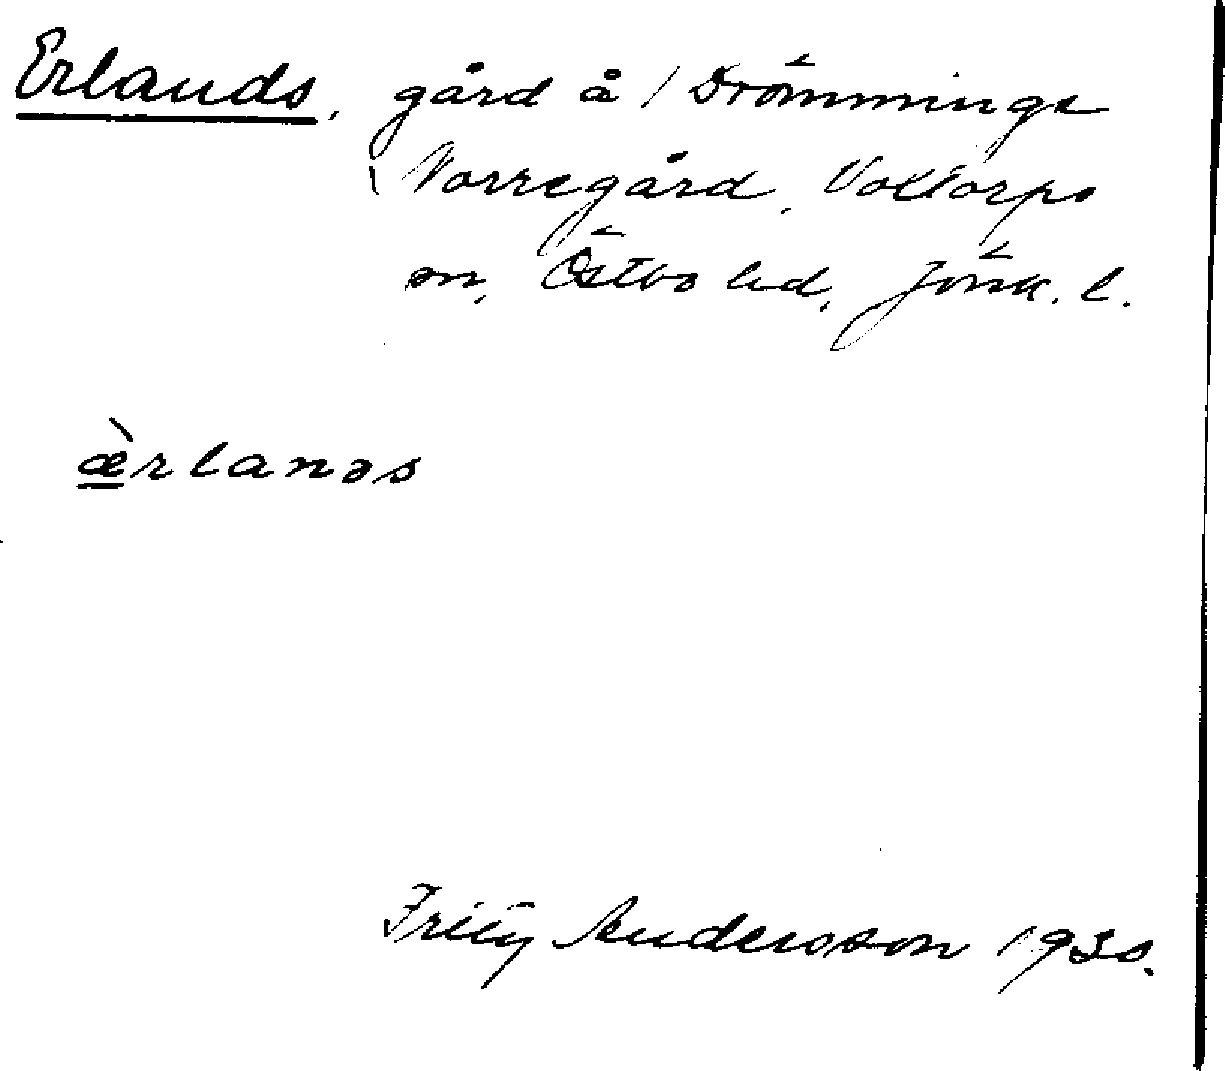 Erlands, gård å / Drömminge
Norregård, Voxtorps
sn, Östbo hd, Jönk. l.
ærlanəs
Fritz Andersson 1930.